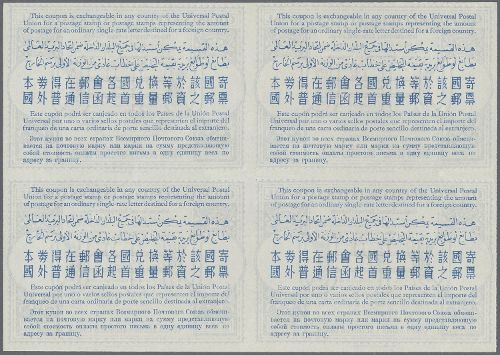 This coupon is exchangeable in any country of the Universal Postal
Union for a postage stamp or postage stamps representing the amount
of postage for an ordinary single-rate letter destined for a foreign country.
هذه القسيمة يمكن استبدالها في جميع البلدان اتحاد البريد العالمي
بطابع أو طوابع بريد بقيمة التخليص على خطاب عادي من الوزنة الأولى برسم الخارج
本券得在郵會各國兌換等於該國寄
國外普通信函起首重量郵資之郵票
Este cupón podrá ser canjeado en todos los Países de la Unión Postal
Universal por uno o varios sellos postales que representen el importe del
franqueo de una carta ordinaria de porte sencillo destinada al extranjero.
Этот купон во всех странах Всемирного Почтового Союза обмени-
вается на почтовую марку или марки на сумму представляющую
собой стоимость оплаты простого письма в одну единицу веса по
адресу за границу.
This coupon is exchangeable in any country of the Universal Postal
Union for a postage stamp or postage stamps representing the amount
of postage for an ordinary single-rate letter destined for a foreign country.
هذه القسيمة يمكن استبدالها في جميع البلدان اتحاد البريد العالمي
بطابع أو طوابع بريد بقيمة التخليص على خطاب عادي من الوزنة الأولى برسم الخارج
本券得在郵會各國兌換等於該國寄
國外普通信函起首重量郵資之郵票
Este cupón podrá ser canjeado en todos los Países de la Unión Postal
Universal por uno o varios sellos postales que representen el importe del
franqueo de una carta ordinaria de porte sencillo destinada al extranjero.
Этот купон во всех странах Всемирного Почтового Союза обмени-
вается на почтовую марку или марки на сумму представляющую
собой стоимость оплаты простого письма в одну единицу веса по
адресу за границу.
This coupon is exchangeable in any country of the Universal Postal
Union for a postage stamp or postage stamps representing the amount
of postage for an ordinary single-rate letter destined for a foreign country.
هذه القسيمة يمكن استبدالها في جميع البلدان اتحاد البريد العالمي
بطابع أو طوابع بريد بقيمة التخليص على خطاب عادي من الوزنة الأولى برسم الخارج
本券得在郵會各國兌換等於該國寄
國外普通信函起首重量郵資之郵票
Este cupón podrá ser canjeado en todos los Países de la Unión Postal
Universal por uno o varios sellos postales que representen el importe del
franqueo de una carta ordinaria de porte sencillo destinada al extranjero.
Этот купон во всех странах Всемирного Почтового Союза обмени-
вается на почтовую марку или марки на сумму представляющую
собой стоимость оплаты простого письма в одну единицу веса по
адресу за границу.
This coupon is exchangeable in any country of the Universal Postal
Union for a postage stamp or postage stamps representing the amount
of postage for an ordinary single-rate letter destined for a foreign country.
هذه القسيمة يمكن استبدالها في جميع البلدان اتحاد البريد العالمي
بطابع أو طوابع بريد بقيمة التخليص على خطاب عادي من الوزنة الأولى برسم الخارج
本券得在郵會各國兌換等於該國寄
國外普通信函起首重量郵資之郵票
Este cupón podrá ser canjeado en todos los Países de la Unión Postal
Universal por uno o varios sellos postales que representen el importe del
franqueo de una carta ordinaria de porte sencillo destinada al extranjero.
Этот купон во всех странах Всемирного Почтового Союза обмени-
вается на почтовую марку или марки на сумму представляющую
собой стоимость оплаты простого письма в одну единицу веса по
адресу за границу.